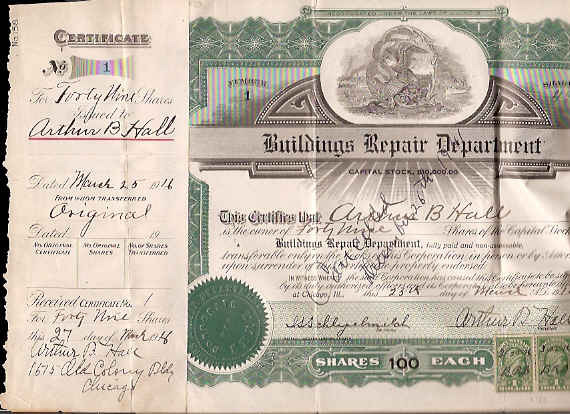 CERTIFICATE
No. 1
For Forty Nine Shares
Issued to
Arthur B Hall
Dated March 25 1916
FROM WHOM TRANSFERRED
Original
Dated 19
No. ORIGINAL CERTIFICATE
No. ORIGINAL SHARES
No. OF SHARES TRANSFERRED
Received CERTIFICATE No. 1
For Forty Nine Shares
this 27 day of March 1916
Arthur B Hall
1675 Old Colony Bldg
Chicago
INCORPORATED UNDER THE LAWS OF
NUMBER
1
SHARES
Buildings Repair Department
CAPITAL STOCK, $10,000.00
This Certifies that Arthur B Hall
is the owner of Forty Nine Shares of the Capital Stock
Buildings Repair Department, fully paid and non-assessable,
transferable only on the books of the Corporation in person or by Attorney
upon surrender of this Certificate properly endorsed.
IN WITNESS WHEREOF, the said Corporation has caused this Certificate to be
by its duly authorized officers and to be sealed with the Seal of the Corporation
at Chicago, Ill. this 25th day of March
Arthur B Hall
SHARES 100 EACH